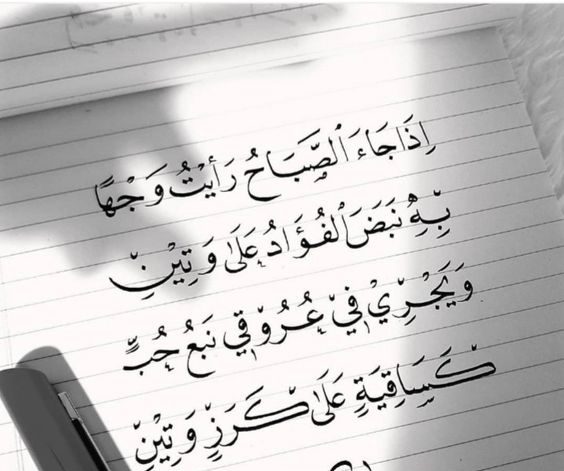 اِذَا جَاءَ الصَّبَاحُ رَأيْتُ وَجْهًا
بِهِ نَبَضَ الفُؤَادُ عَلَى وَتِيْنِ
وَيَجْرِيْ فِيْ عُرُوْقِي نَبْعُ حُبٍّ
كَسَاقِيَةٍ عَلَى كَرَزٍ وَتِيْنِ